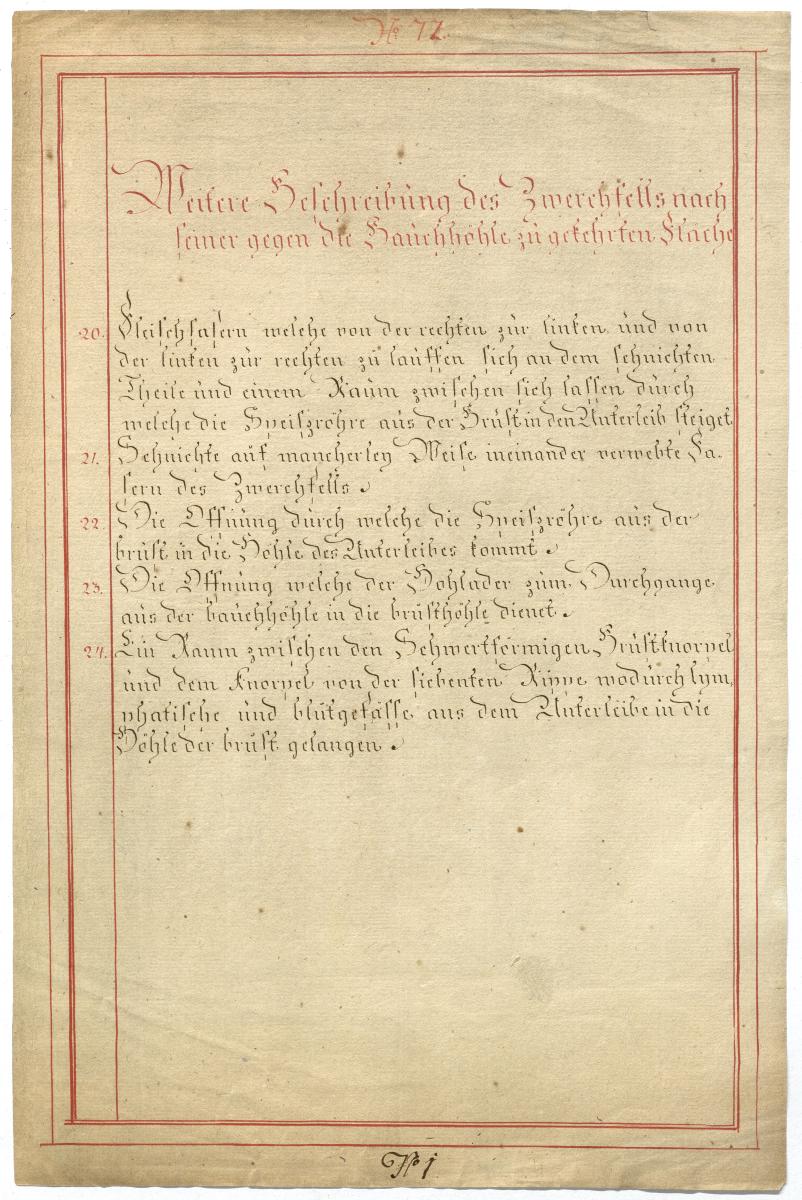 No. 72.
Weitere Beschreibung des Zwerchfells nach
seiner gegen die Bauchhöhle zu gekehrten Fläche
20. Fleischfasern welche von der rechten zur linken und von
der linken zur rechten zu lauffen sich an dem sehnichten
Theile und einem Raum zwischen sich lassen durch
welche die Speiszröhre aus der Brust in den Unterleib steiget
21. Sehnichte auf mancherley Weise ineinander verwebte Fa-
sern des Zwerchfells.
22. Die Öffnung durch welche die Speiszröhre aus der
brust in die Höhle des Unterleibes kommt.
23. Die Öffnung welche der Hohlader zum Durchgange
aus der bauchhöhle in die brusthöhle dienet.
24. Ein Raum zwischen den Schwertförmigen Brustknorpel
und dem Knorpel von der siebenten Rippe wodurch lym-
phatische und blutgefässe aus dem Unterleibe in die
Höhle der brust gelangen.
No 1